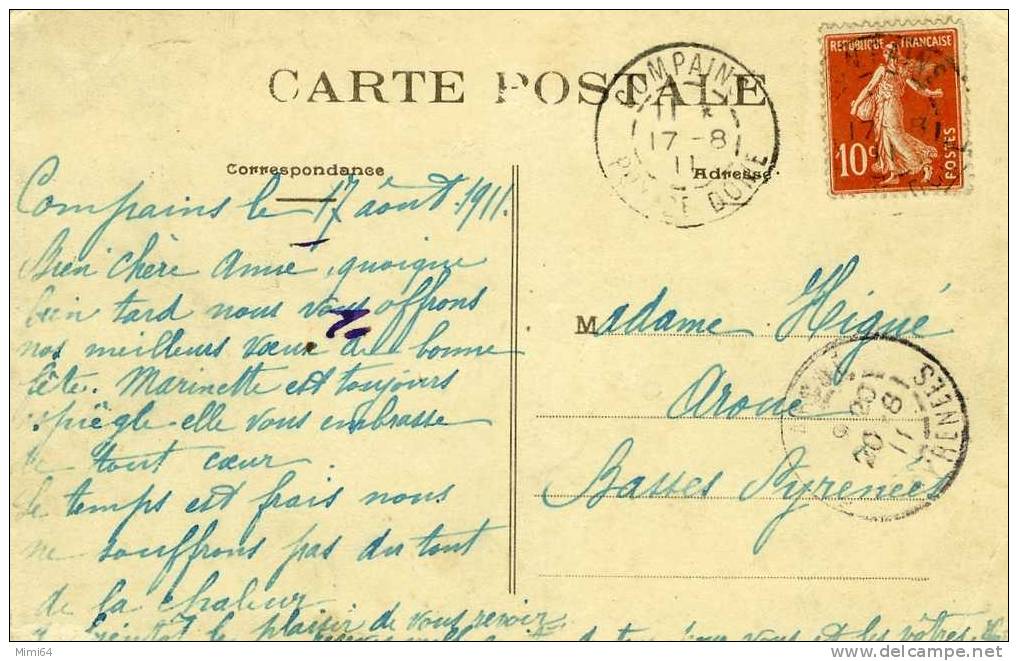 CARTE POSTALE
Correspondance
Adresse
COMPAINS
17-8
11
PUY DE DOME
REPUBLIQUE FRANÇAISE
10c
POSTES
Compains le 17 août 1911.
Bien chère Anne, quoique
bien tard nous vous offrons
nos meilleurs vœux de bonne
fête. Marinette est toujours
espiègle elle vous embrasse
de tout cœur
Le temps est frais nous
ne souffrons pas du tout
de la chaleur
bientôt le plaisir de vous revoir
vous et les vôtres
Madame Higué
Aroue
Basses Pyrenées
20-8
11
PYRENEES
Mimi64
delcampe.net